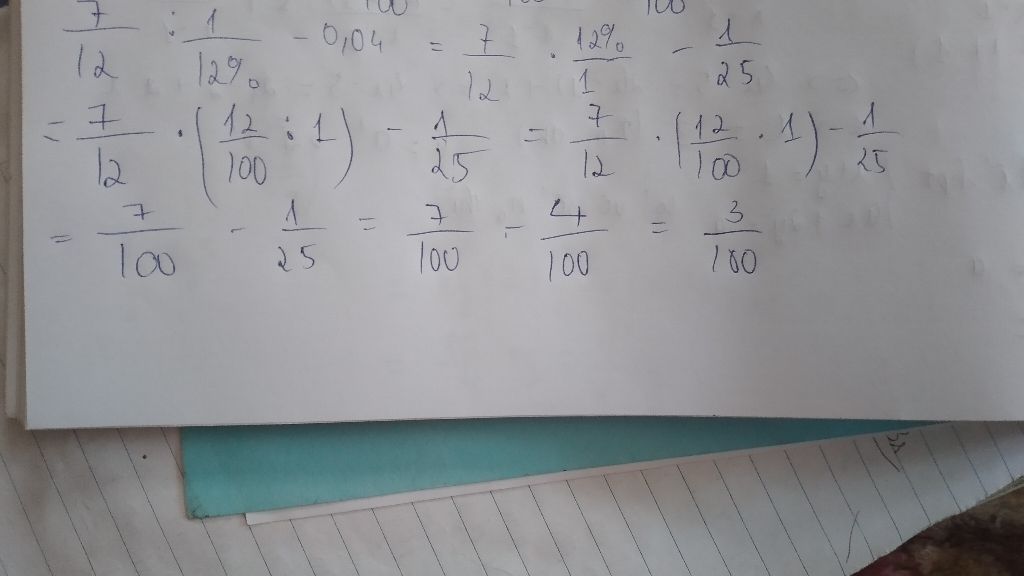 100 100 100
7/12 : 1/12% - 0,04 = 7/12 · 12%/1 - 1/25
= 7/12 · (12/100 : 1) - 1/25 = 7/12 · (12/100 · 1) - 1/25
= 7/100 - 1/25 = 7/100 - 4/100 = 3/100